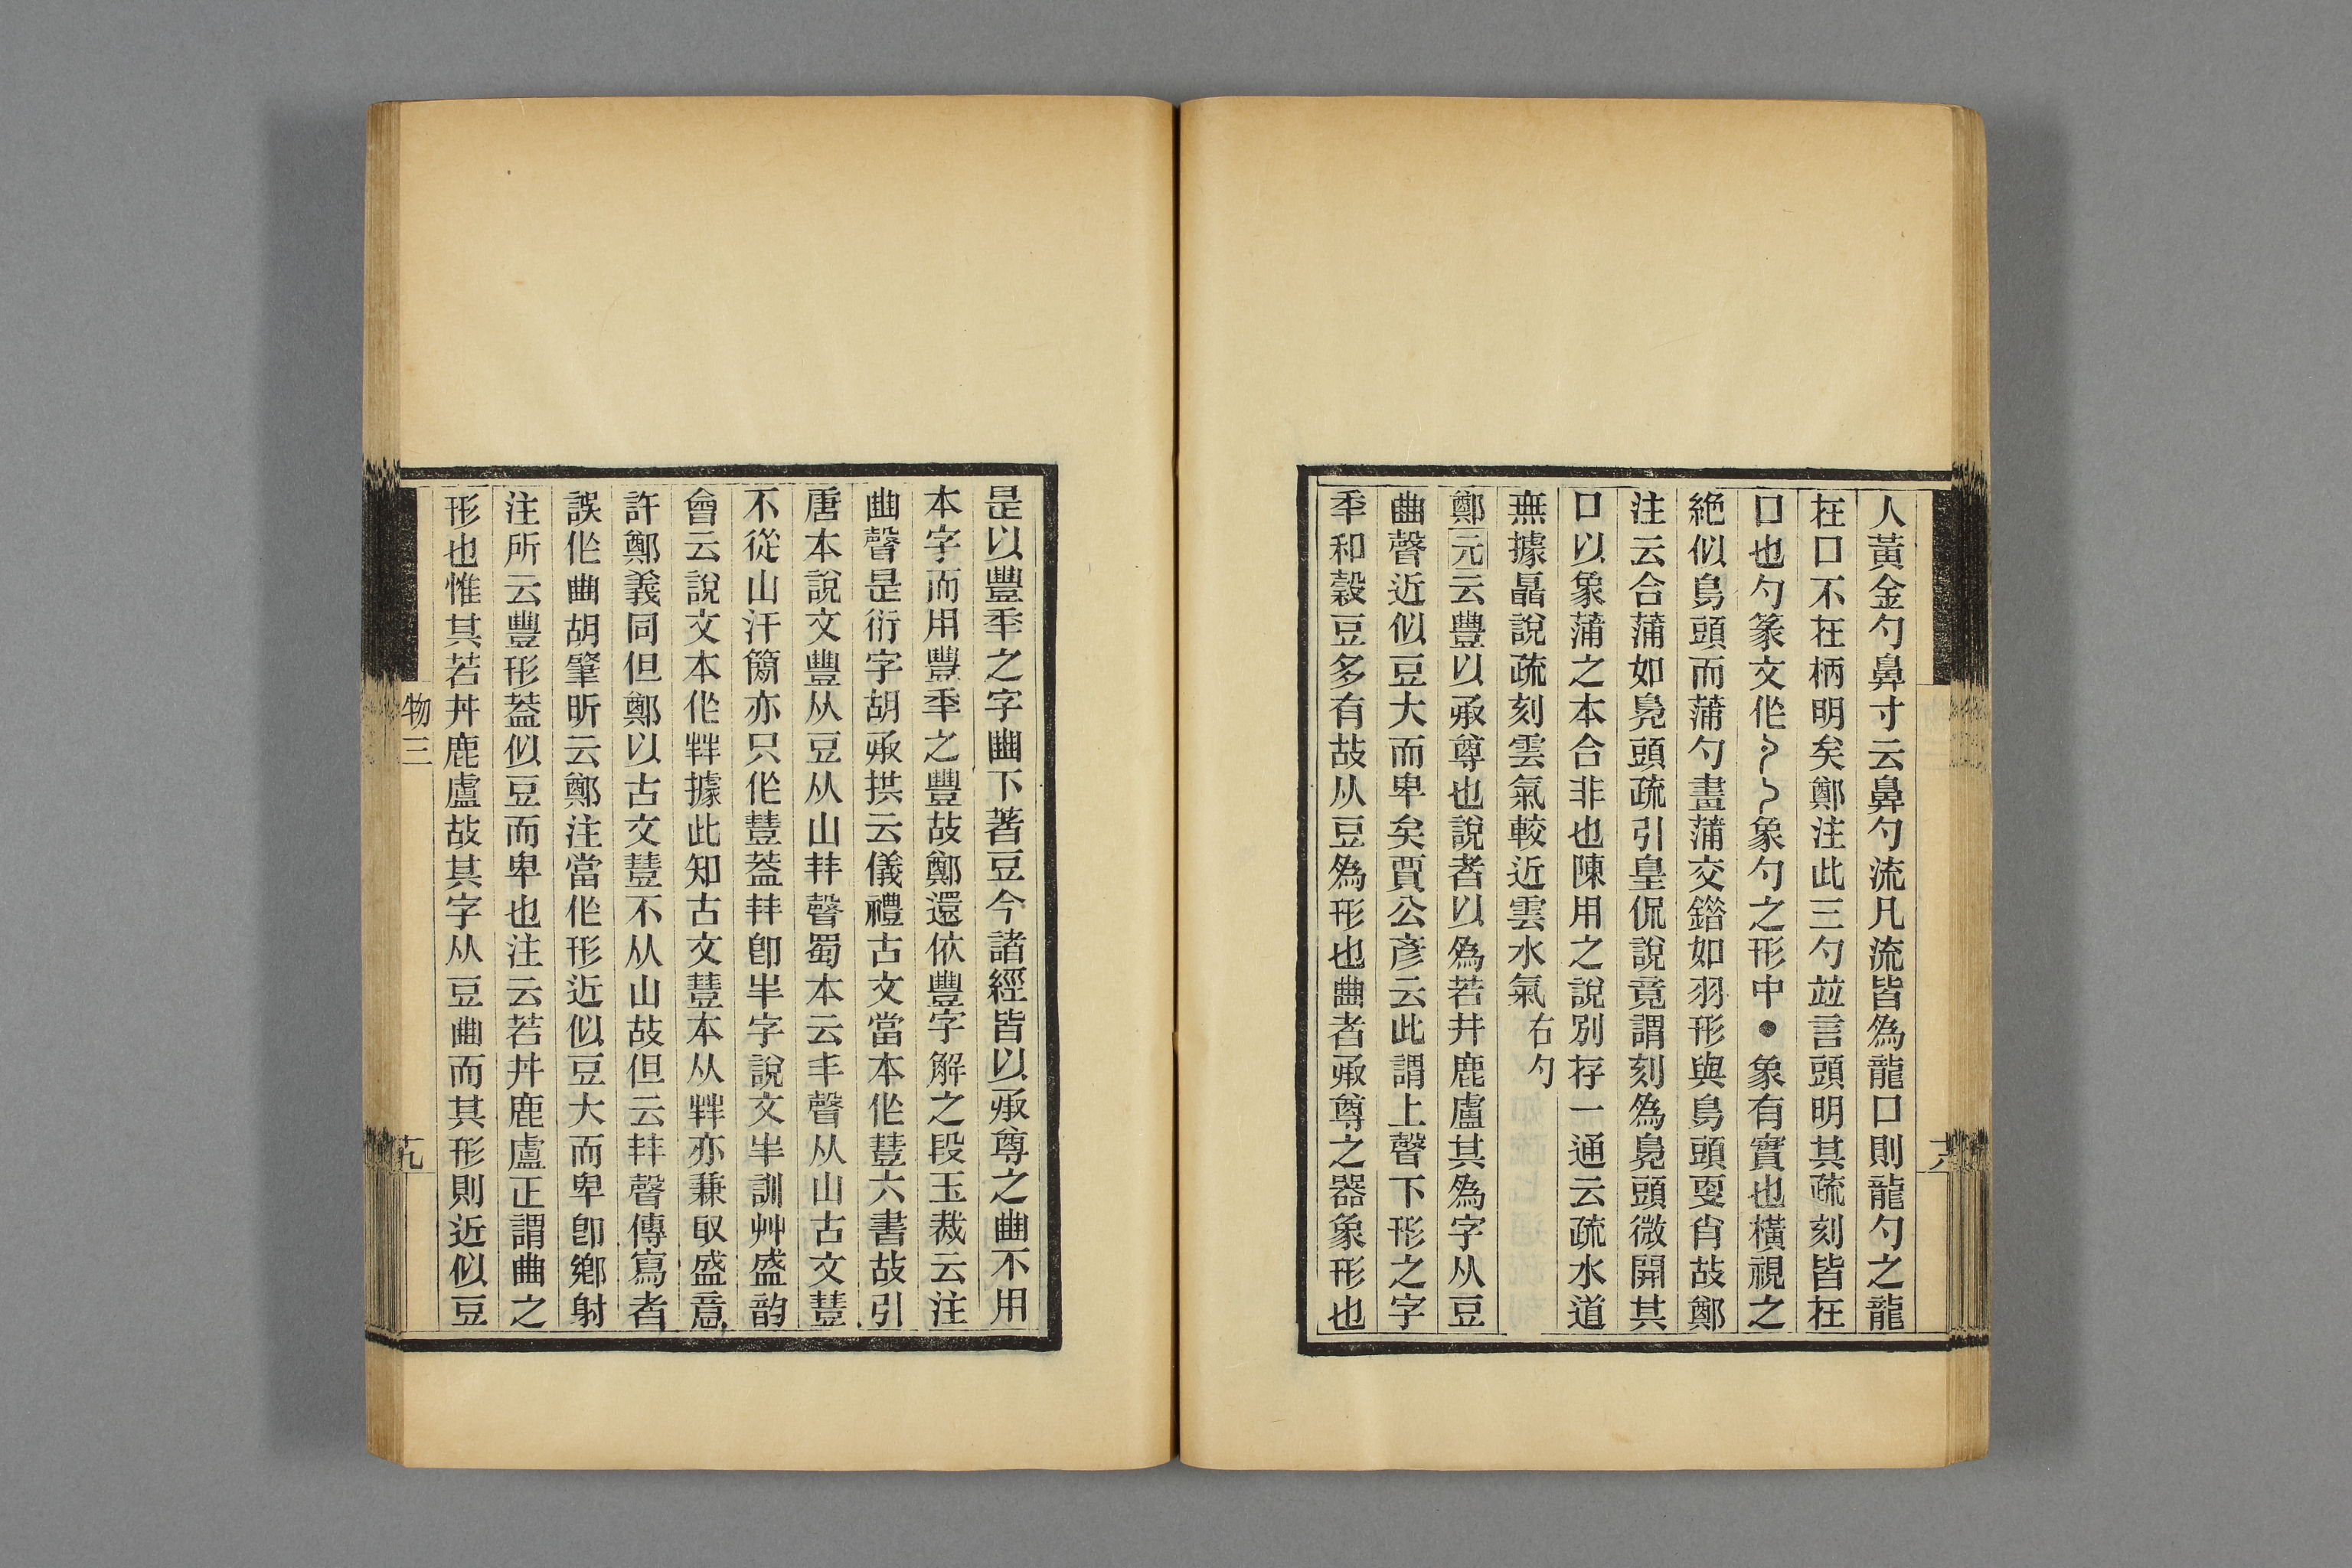 人黃金勺鼻寸云鼻勺流凡流皆爲龍口則龍勺之龍
在口不在柄明矣鄭注此三勺竝言頭明其疏刻皆在
口也勺篆文作象勺之形中●象有實也橫視之
絶似鳧頭而蒲勺畫蒲交錯如羽形與鳧頭更肖故鄭
注云合蒲如鳧頭疏引皇侃說竟謂刻爲鳧頭微開其
口以象蒲之本合非也陳用之說別存一通云疏水道
無據聶說疏刻雲氣較近雲水氣 右勺
鄭元云豐以承尊也說者以爲若井鹿盧其爲字从豆
𧯮聲近似豆大而卑矣賈公彥云此謂上聲下形之字
年和穀豆多有故从豆爲形也𧯮者承尊之器象形也
是以豐年之字𧯮下著豆今諸經皆以承尊之𧯮不用
本字而用豐年之豐故鄭還依豐字解之段玉裁云注
𧯮聲是衍字胡承珙云儀禮古文當本作䒠六書故引
唐本說文豐从豆从山丰聲蜀本云丰聲从山古文䒠
不從山汗簡亦只作䒠葢丰卽丰字說文丰訓艸盛韵
會云說文本作丰據此知古文䒠本从丰亦兼取盛意
許鄭義同但鄭以古文䒠不从山故但云丰聲傳寫者
誤作𧯮胡肇昕云鄭注當作形近似豆大而卑卽鄉射
注所云豐形葢似豆而卑也注云若井鹿盧正謂曲之
形也惟其若井鹿盧故其字从豆曲而其形則近似豆
物三
十九